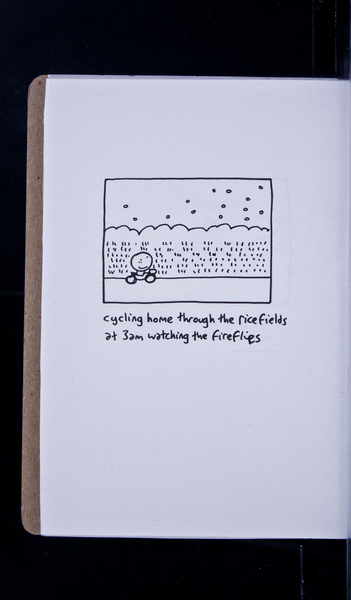 cycling home through the ricefields
at 3am watching the fireflies